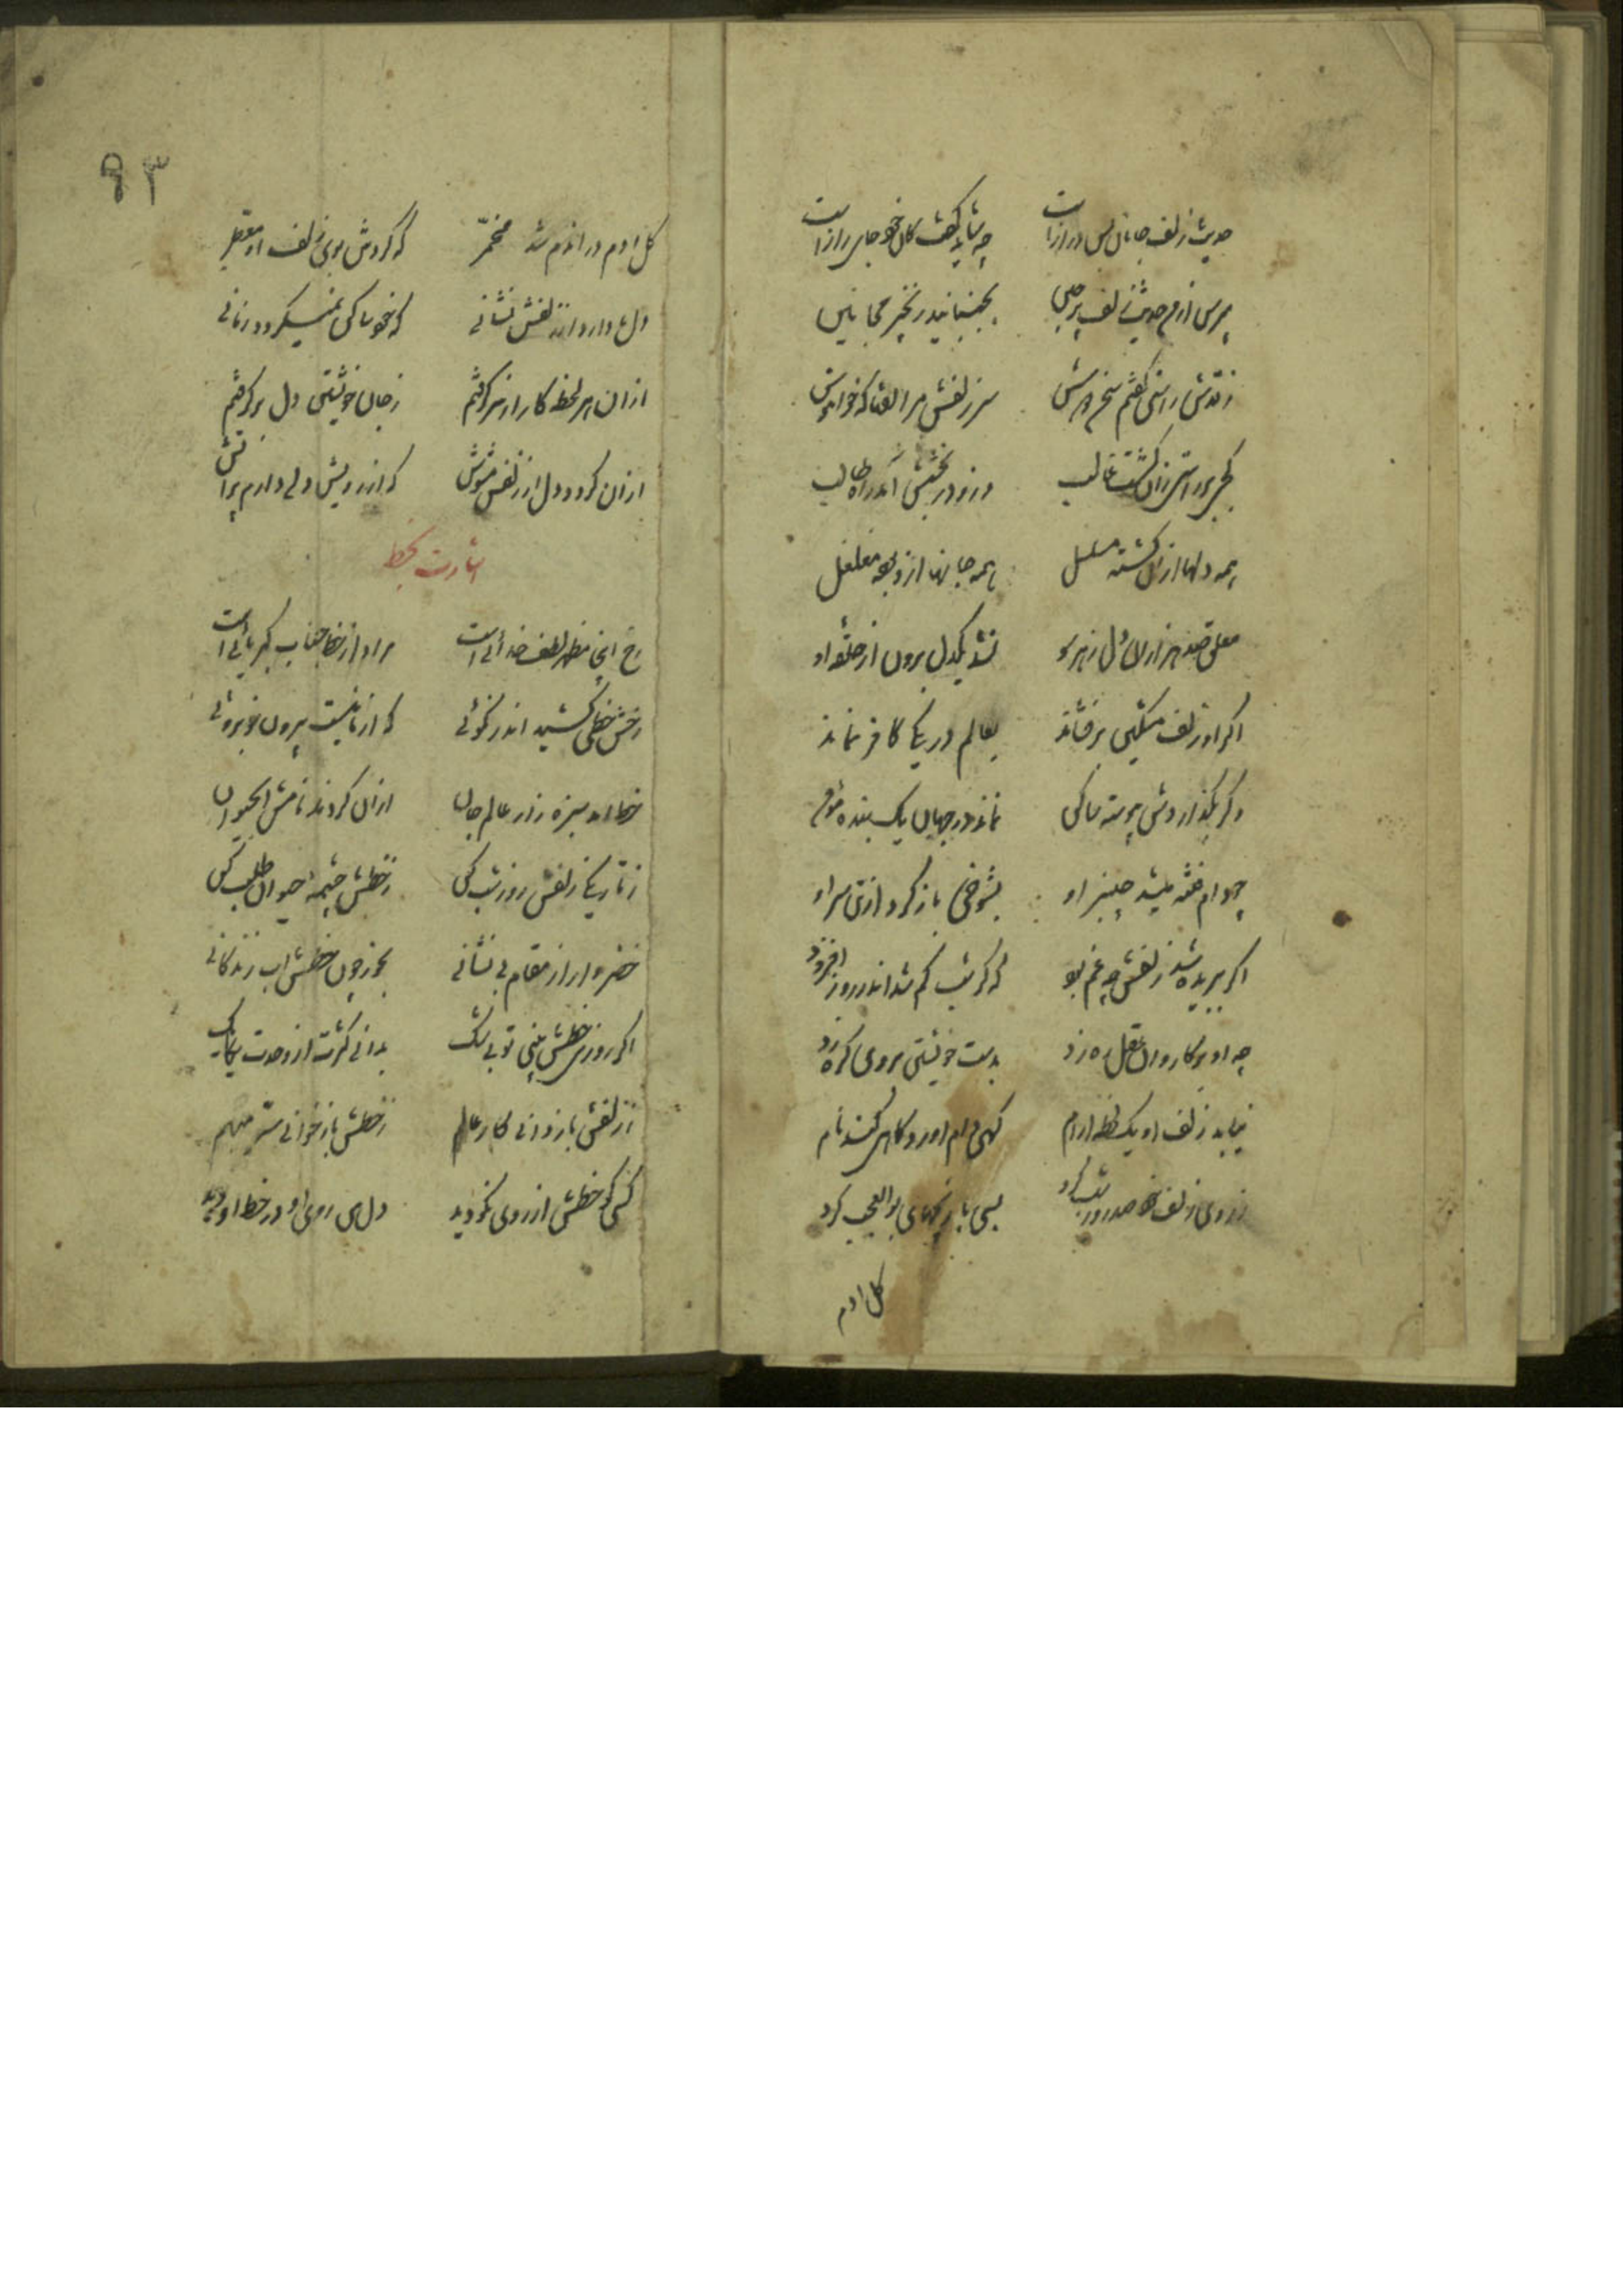 حدیث زلف جانان بس درازاست چه شاید گفت کان خود جای رازاست
مپرس از من حدیث زلف پرچین بجنبانید زنجیر مجانین
ز قدش راستی گفتم سخن دوش سر زلفش مرا گفتا که خاموش
کجی بر راستی زان گشت غالب وزو در پیچش آمد راه طالب
همه دلها ازان گشته مسلسل همه جانها ازو بوده مقلقل
معلق صد هزاران دل ز هر سو نشد یکدل برون از حلقه او
اگر او زلف مشکین برفشاند بعالم در یکی کافر نماند
وگر بگذاردش پیوسته ساکن نماند در جهان یک بنده مؤمن
چو دام فتنه میشد چنبر او بشوخی باز کرد از تن سر او
اگر ببریده شد زلفش چه غم بود که گر شب کم شد اندر روز افزود
چو او بر کاروان عقل ره زد بدست خویشتن بروی گره زد
نیابد زلف او یک لحظه ارام گهی بام اورد گاهی کند شام
ز روی زلف خود صد روز شب کرد بسی بازیچهای بوالعجب کرد
کل ادم
۹۳
کل ادم در اندم شد مخمر که کردش بوی زلف او معطر
دل ما دارد از زلفش نشانی که خود ساکن نمیگردد زمانی
ازان هر لحظه کار از سر گرفتم ز جان خویشتن دل برگرفتم
ازان گردد دل از زلفش مشوش که از رویش دلی دارم پراتش
اشارت بخط
رخ اینجا مظهر لطف خدائی است مراد از خط جناب کبریائی است
رخش خطی کشید اندر نکوئی که از ما نیست بیرون خوبروئی
خط امد سبزه زار عالم جان ازان کردند نامش اب حیوان
ز تاریکی زلفش روز شب کن ز خطش چشمه حیوان طلب کن
خضروار از مقام بی نشانی بخور چون خطش اب زندگانی
اگر روی خطش بینی تو بی شک بدانی کثرت از وحدت یکایک
ز زلفش باز دانی کار عالم ز خطش باز خوانی سر مبهم
کسی کو خطش از روی نکو دید دل من روی او در خط او دید